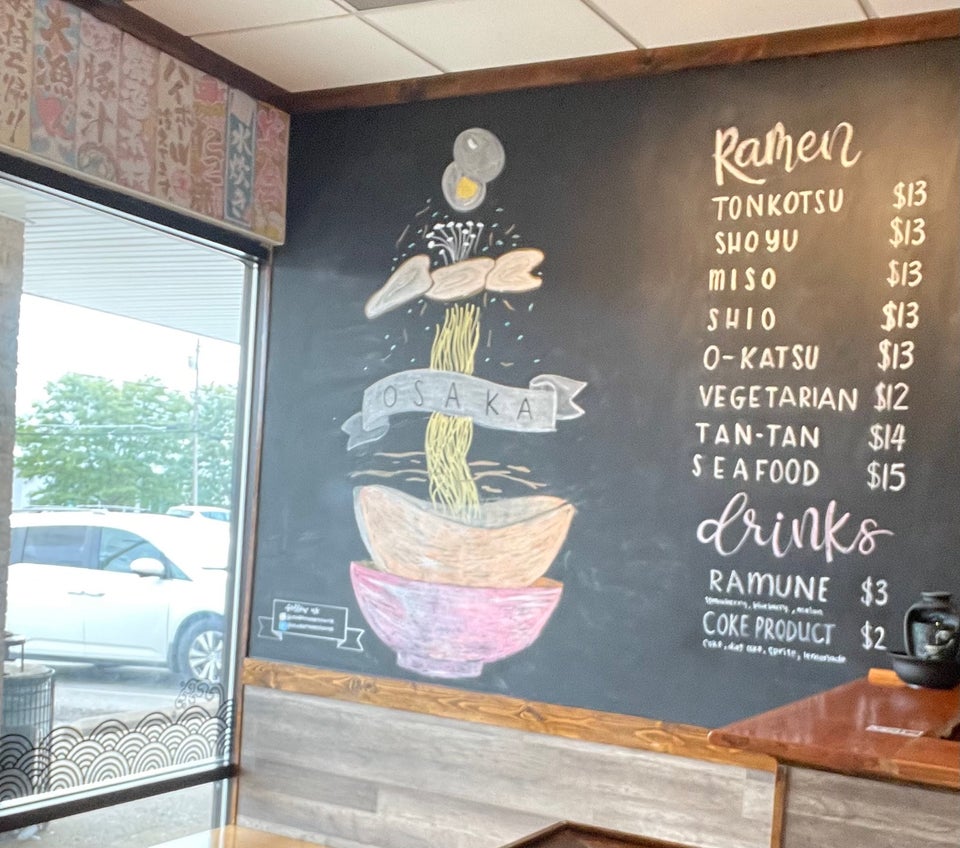 大漁
豚汁
ハイボール
水炊き
OSAKA
follow us
Ramen
TONKOTSU $13
SHOYU $13
MISO $13
SHIO $13
O-KATSU $13
VEGETARIAN $12
TAN-TAN $14
SEAFOOD $15
drinks
RAMUNE $3
strawberry, blueberry, melon
COKE PRODUCT $2
coke, diet coke, sprite, lemonade